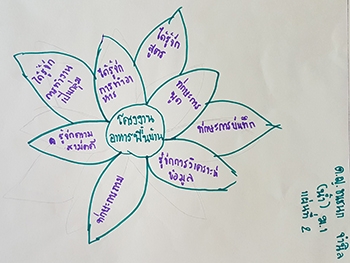 โครงงาน
อาหารพื้นบ้าน
ได้รู้จัก
การทำงาน
เป็นกลุ่ม
ได้รู้จัก
การทำอา
หาร
ได้รู้จัก
สูตร
ทักษะการ
พูด
ทักษะการบันทึก
รู้จักการวิเคราะห์
ข้อมูล
ทักษะการถาม
รู้จักความ
สามัคคี
ด.ญ.
ม.1
แผ่นที่ 2